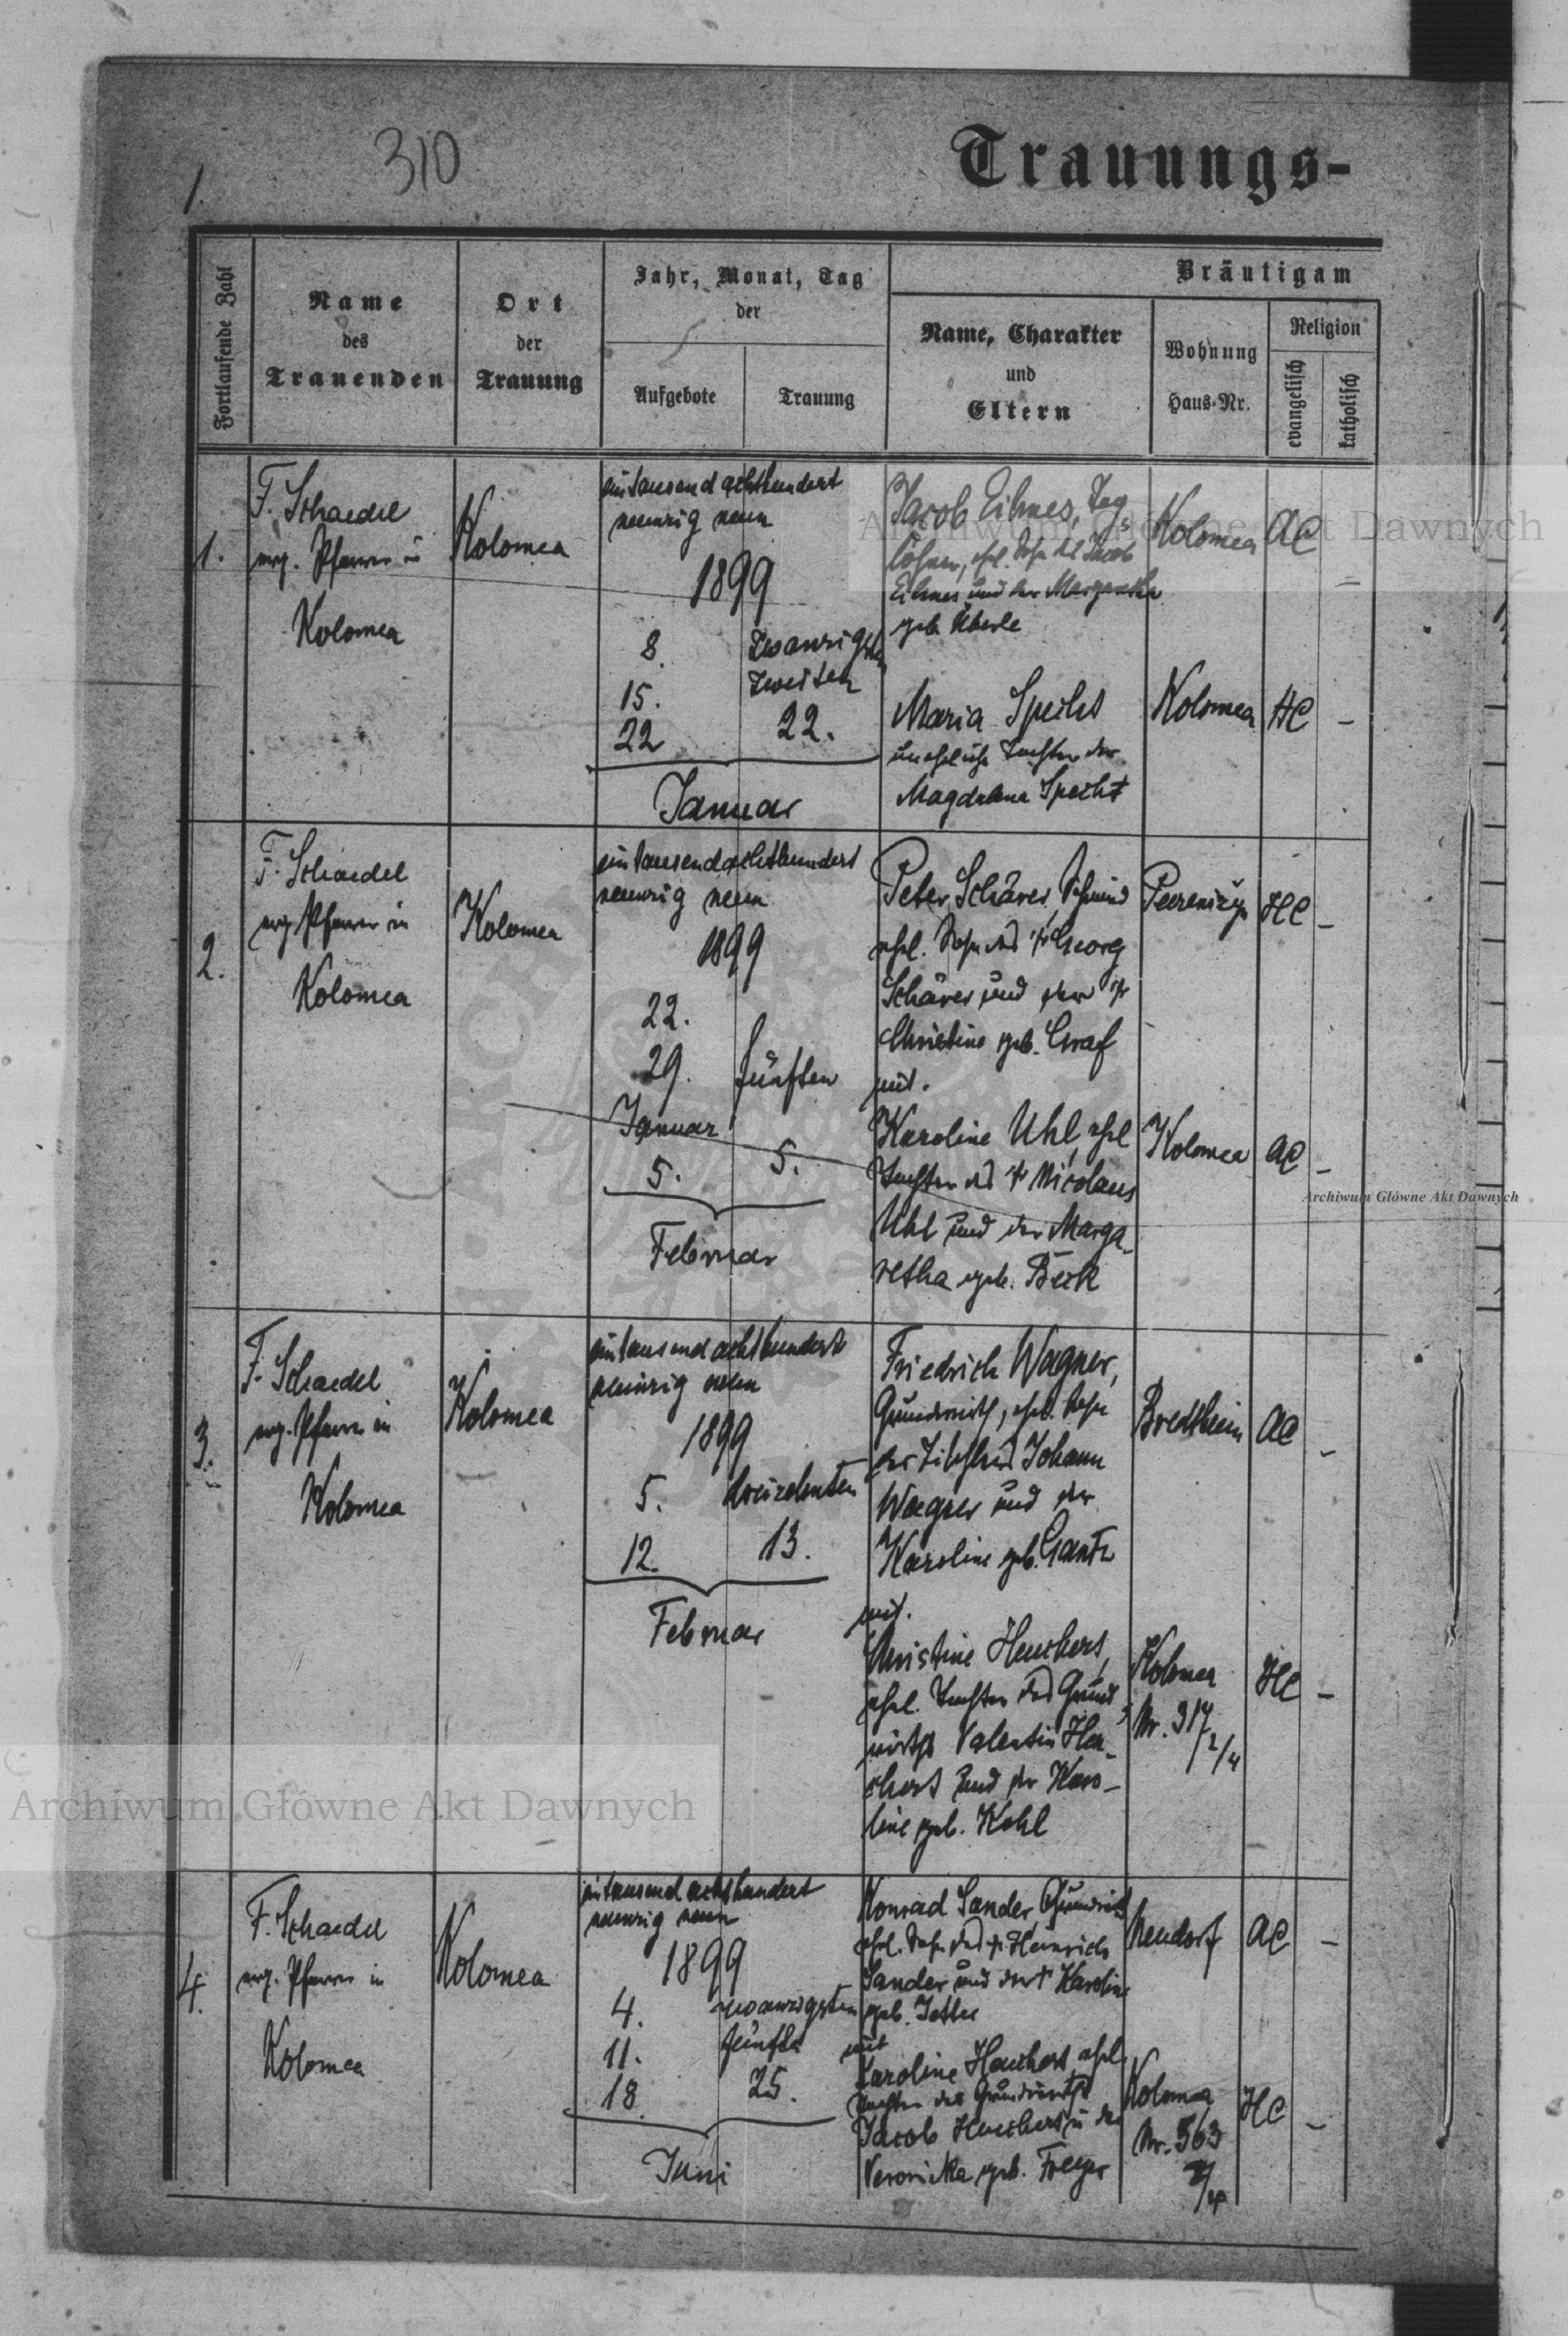 1.
310
Trauungs-
Fortlaufende Zahl
Name
des
Trauenden
Ort
der
Trauung
Jahr, Monat, Tag
der
Aufgebote
Trauung
Bräutigam
Name, Charakter
und
Eltern
Wohnung
Haus-Nr.
Religion
evangelisch
katholisch
1.
F. Schaedel
evg. Pfarrer in
Kolomea
Kolomea
eintausend achthundert
neunzig neun
1899
8.
15.
22
zwanzigsten
zweiten
22.
Januar
Jacob Eihmes, Tag
löhner, ehel. Sohn des Jacob
Eihmes und der Margaretha
geb. Überle
Kolomea
AC
Maria Specht
uneheliche Tochter der
Magdalena Specht
Kolomea
HC
-
2.
F. Schaedel
evg. Pfarrer in
Kolomea
Kolomea
eintausendachthundert
neunzig neun
1899
22.
29.
Januar
5.
fünften
5.
Februar
Peter Schärer, Schmied
ehel. Sohn des † Georg
Schärer und der †
Christine geb. Graf
mit.
HC
-
Karoline Uhl, ehel
Tochter des † Nicolaus
Uhl und der Marga-
retha geb. Beck
Kolomea
AC
-
3.
F. Schaedel
evg. Pfarrer in
Kolomea
Kolomea
eintausend achthundert
neunzig neun
1899
5.
12.
dreizehnten
13.
Februar
Friedrich Wagner,
Grundwirth, ehel. Sohn
des Tischlers Johann
Wagner und der
Karoline geb. Gantz
mit.
Bredtheim
AC
-
Christine Heuchert,
ehel. Tochter des Grund
wirths Valentin Heu-
chert und der Karo-
line geb. Kohl
Kolomea
Nr. 317
/2/4
HC
-
4.
F. Schaedel
evg. Pfarrer in
Kolomea
Kolomea
eintausend achthundert
neunzig neun
1899
4.
11.
18.
zwanzigsten
fünften
25.
Juni
Konrad Sander, Grundwirth
ehel. Sohn des † Heinrich
Sander und der † Karoline
geb.
mit
Neudorf
AC
-
Karoline Heuchert, ehel.
Tochter des Grundwirths
Jacob Heuchert u. der
Veronika geb. Freyer
Kolomea
Nr. 563
HC
-
Archiwum Główne Akt Dawnych
Archiwum Główne Akt Dawnych
Archiwum Główne Akt Dawnych